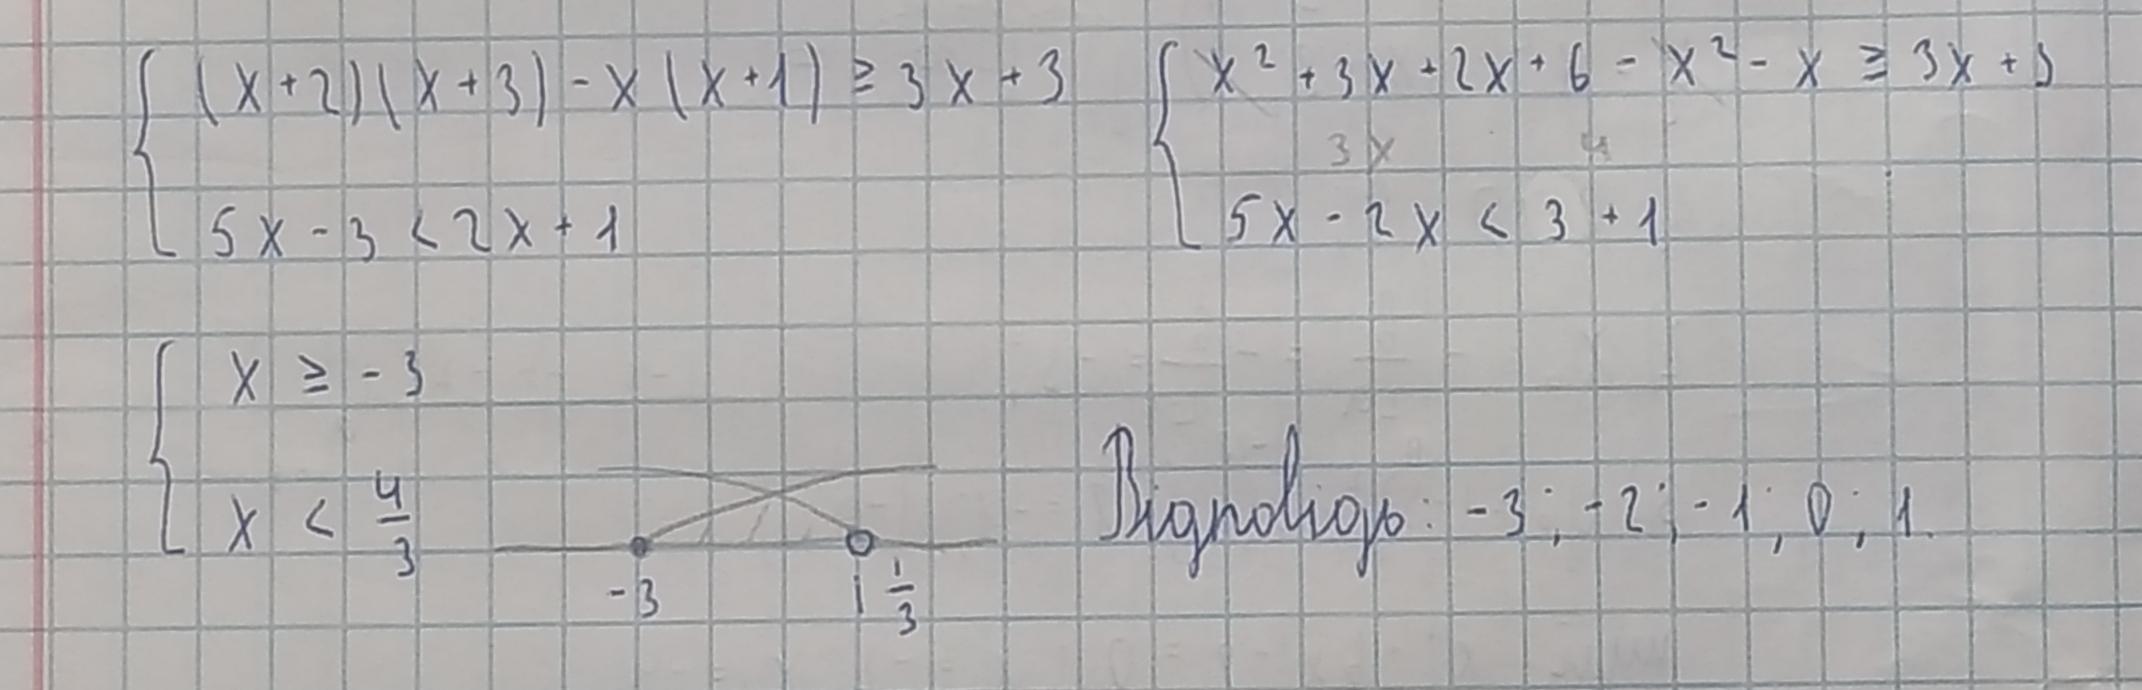 (x+2)(x+3) - x(x+1) ≥ 3x+3
5x - 3 < 2x + 1
x² + 3x + 2x + 6 - x² - x ≥ 3x + 3
3x 4
5x - 2x < 3 + 1
x ≥ -3
x < 4/3
-3 1 1/3
Відповідь: -3; -2; -1; 0; 1.